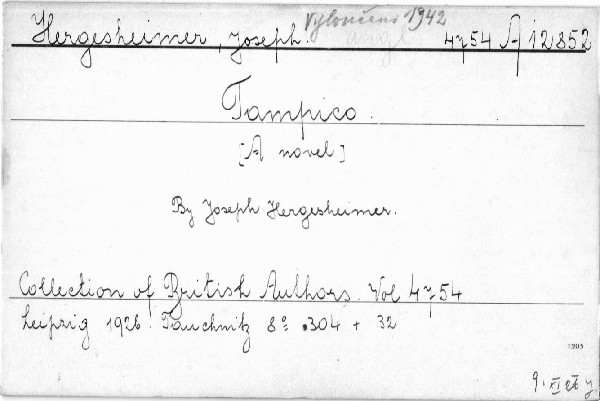 Hergesheimer, Joseph. Vyloučeno 1942 4754 A 12852
Tampico.
[A novel]
By Joseph Hergesheimer.
Collection of British Authors. Vol 4754
Leipzig 1926. Tauchnitz 8° 304 + 32
1205
9. XI 26